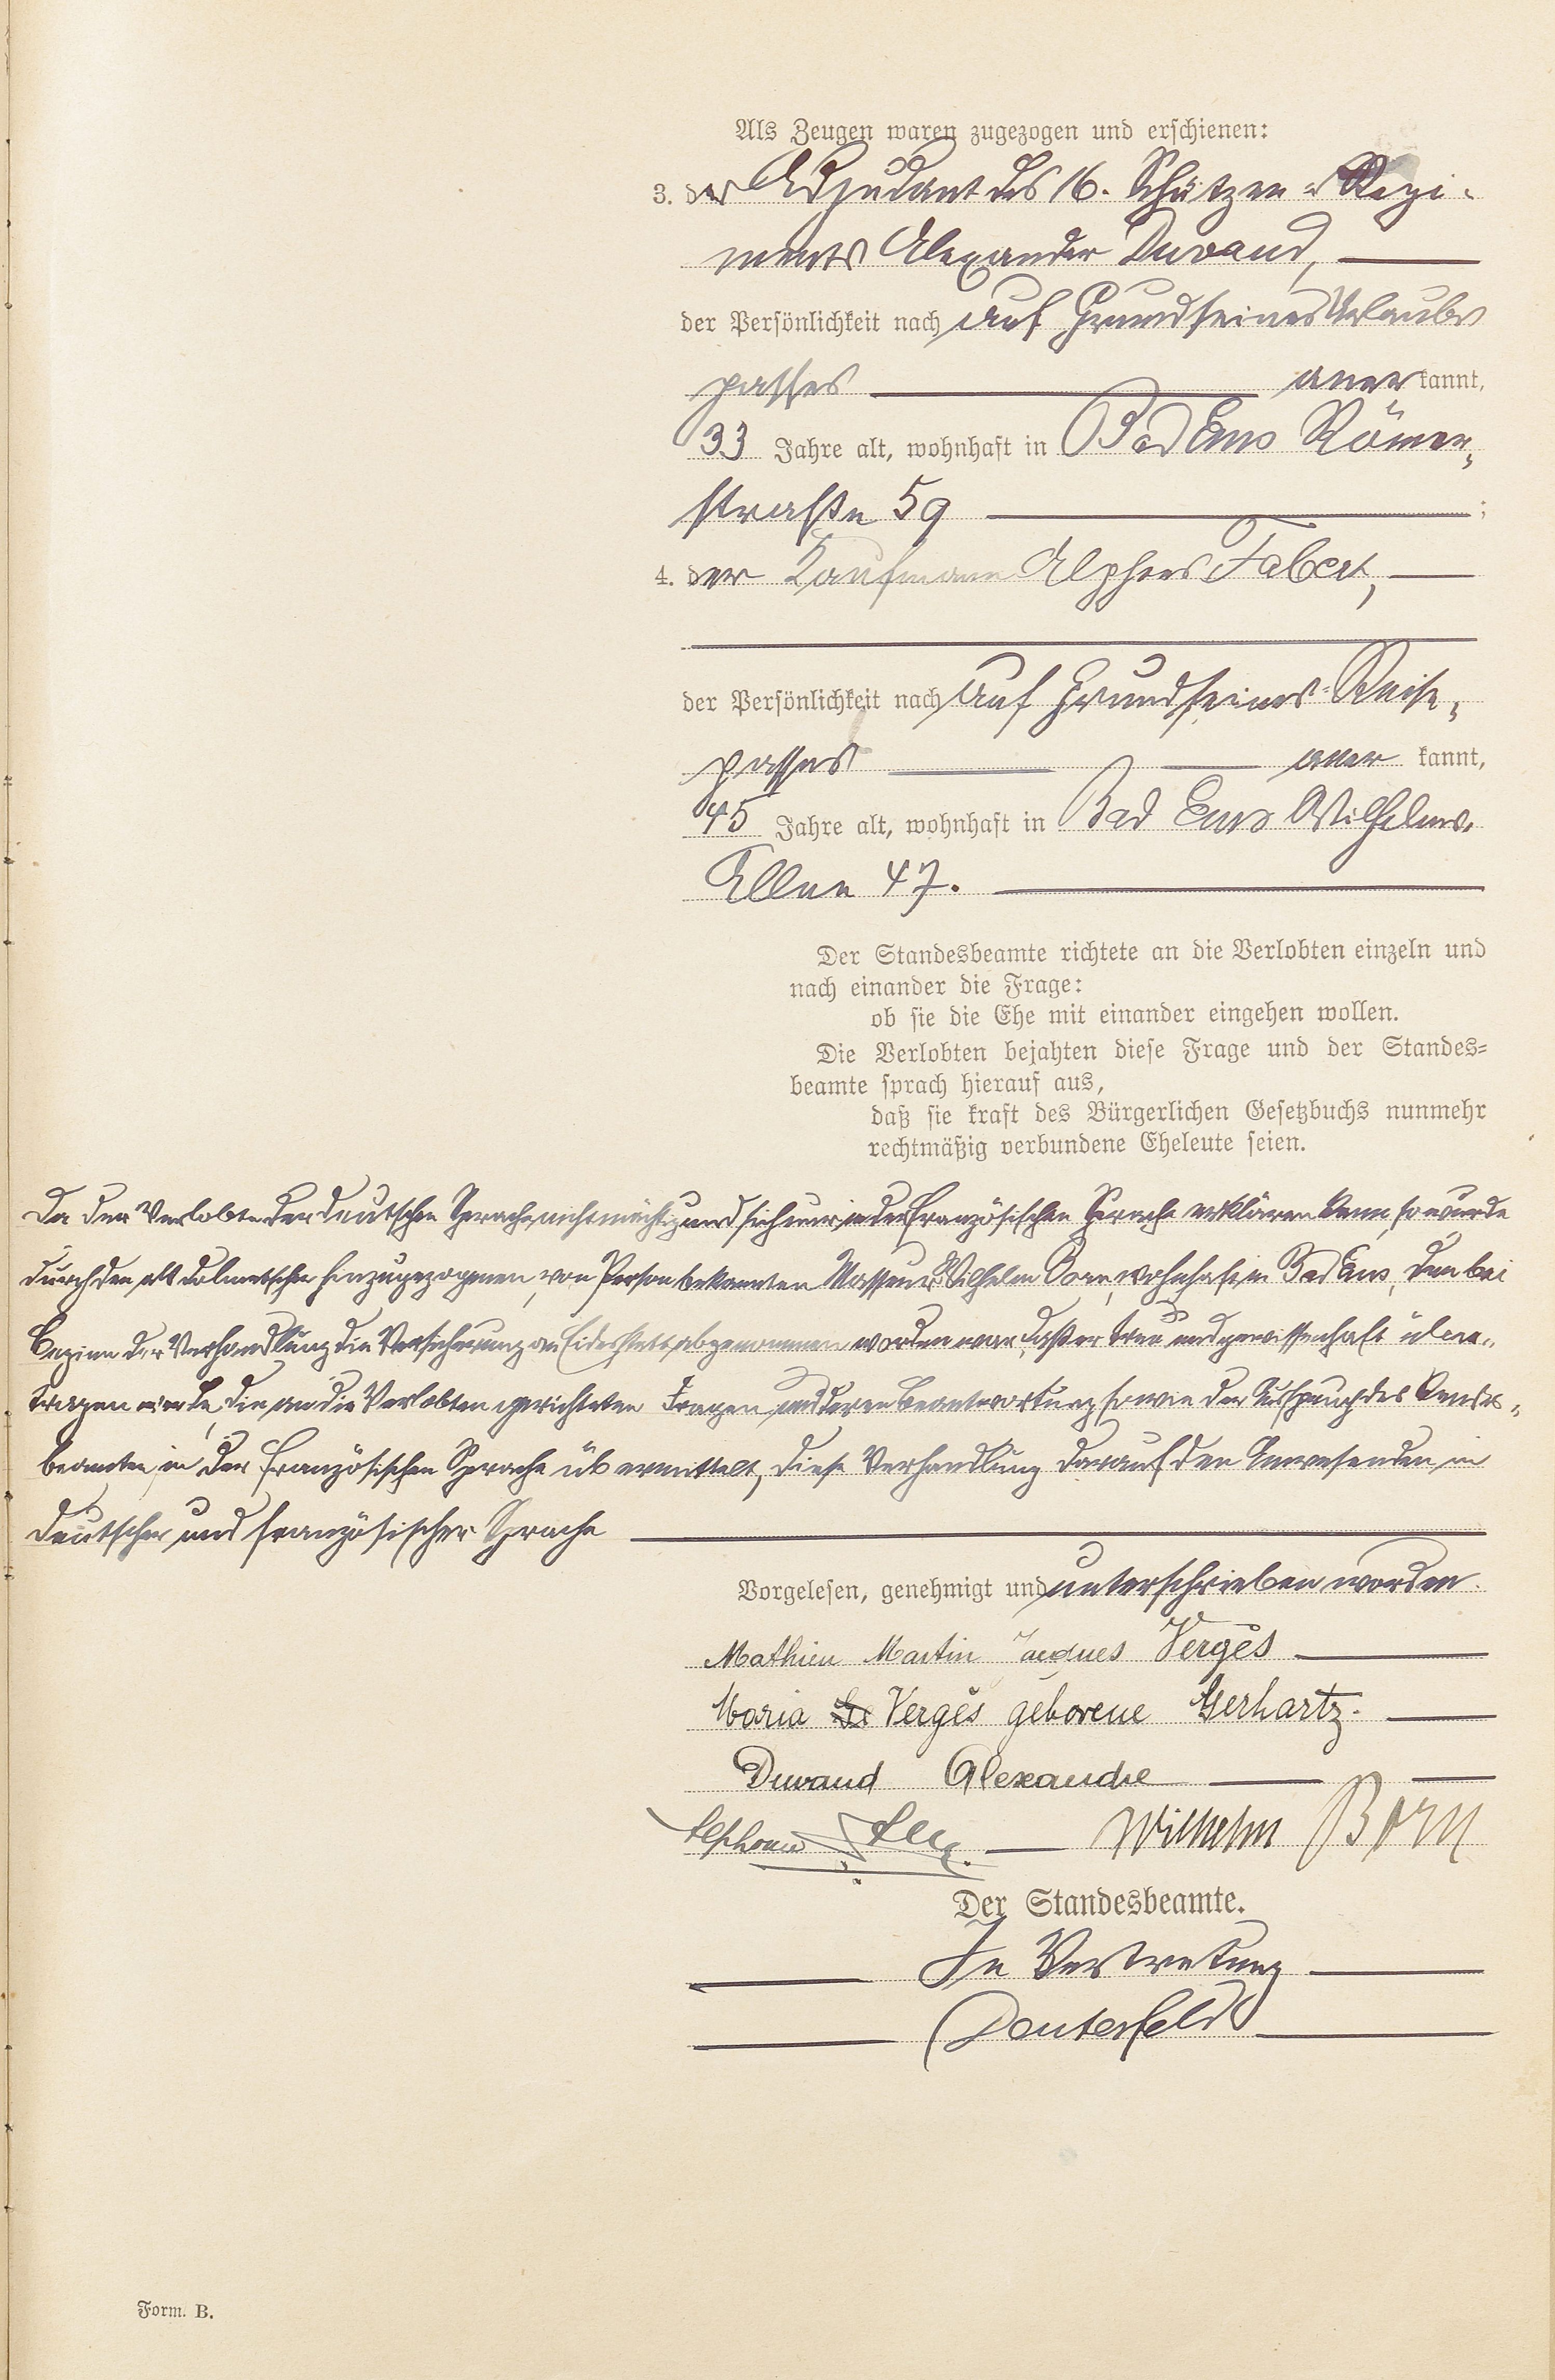 Als Zeugen waren zugezogen und erschienen:
3. der Adjudant des 16. Schützen = Regi-
ments Alexander Durand,
der Persönlichkeit nach auf Grund seines Urlaubs
passes anerkannt,
33 Jahre alt, wohnhaft in Bad Ems Römer-
straße 59 ;
4. der Kaufmann Alphons Fabert,
der Persönlichkeit nach auf Grund seines Reise-
passes aner kannt,
45 Jahre alt, wohnhaft in Bad Ems Wilhelms-
Allee 47.
Der Standesbeamte richtete an die Verlobten einzeln und
nach einander die Frage:
ob sie die Ehe mit einander eingehen wollen.
Die Verlobten bejahten diese Frage und der Standes=
beamte sprach hierauf aus,
daß sie kraft des Bürgerlichen Gesetzbuchs nunmehr
rechtmäßig verbundene Eheleute seien.
Da der Verlobte der deutschen Sprache nicht mächtig und sich nur in der französischen Sprache erklären kann, so wurde
durch den als Dolmetscher hinzugezogenen, von Person bekannten Masseur Wilhelm Born, wohnhaft in Bad Ems, dem bei
Beginn der Verhandlung die Versicherung an Eidesstatt abgenommen worden war, daß er treu und gewissenhaft über-
tragen werde, die an die Verlobten gerichteten Fragen und deren Beantwortung sowie der Ausspruch des Standes-
beamten in der französischen Sprache übermittelt, diese Verhandlung darauf den Anwesenden in
deutscher und französischer Sprache
Vorgelesen, genehmigt und unterschrieben worden.
Mathieu Martin Jacques Vergès
Maria Ge Vergès geborene Gerhartz.
Durand Alexandre
Alphonse Wilhelm Born
Der Standesbeamte.
In Vertretung
Dauterfeld
Form. B.